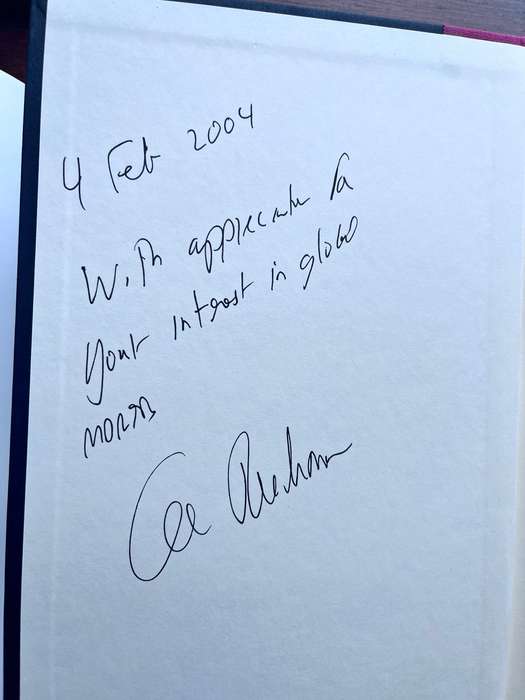 4 Feb 2004
With appreciation for
your interest in global